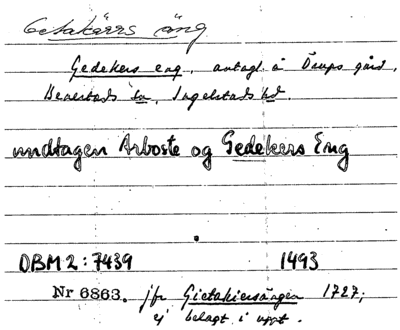 Getakärrs äng
Gedekers eng, antagl. å Örups gård,
Benestads sn, Ingelstads hd.
undtagen Arboste og Gedekers Eng
DBM 2: 7439 1493
Nr 6863. jfr Gietakiersängen 1727;
ej belagt i uppt.